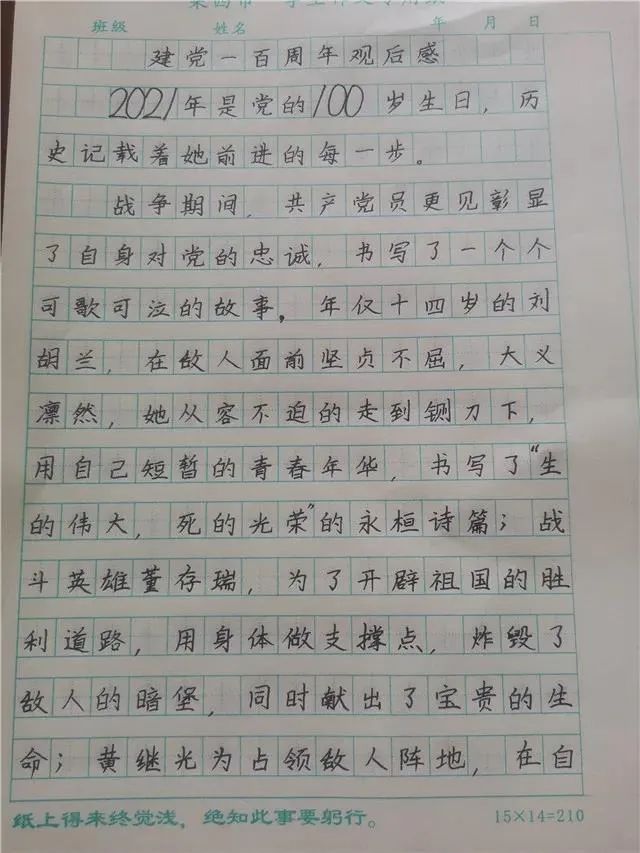 班级 姓名 年 月 日
建党一百周年观后感
2021年是党的100岁生日，历
史记载着她前进的每一步。
战争期间，共产党员更见彰显
了自身对党的忠诚，书写了一个个
可歌可泣的故事。年仅十四岁的刘
胡兰，在敌人面前坚贞不屈，大义
凛然，她从容不迫的走到铡刀下，
用自己短暂的青春年华，书写了“生
的伟大，死的光荣”的永桓诗篇；战
斗英雄董存瑞，为了开辟祖国的胜
利道路，用身体做支撑点，炸毁了
敌人的暗堡，同时献出了宝贵的生
命；黄继光为占领敌人阵地，在自
纸上得来终觉浅，绝知此事要躬行。 15×14=210